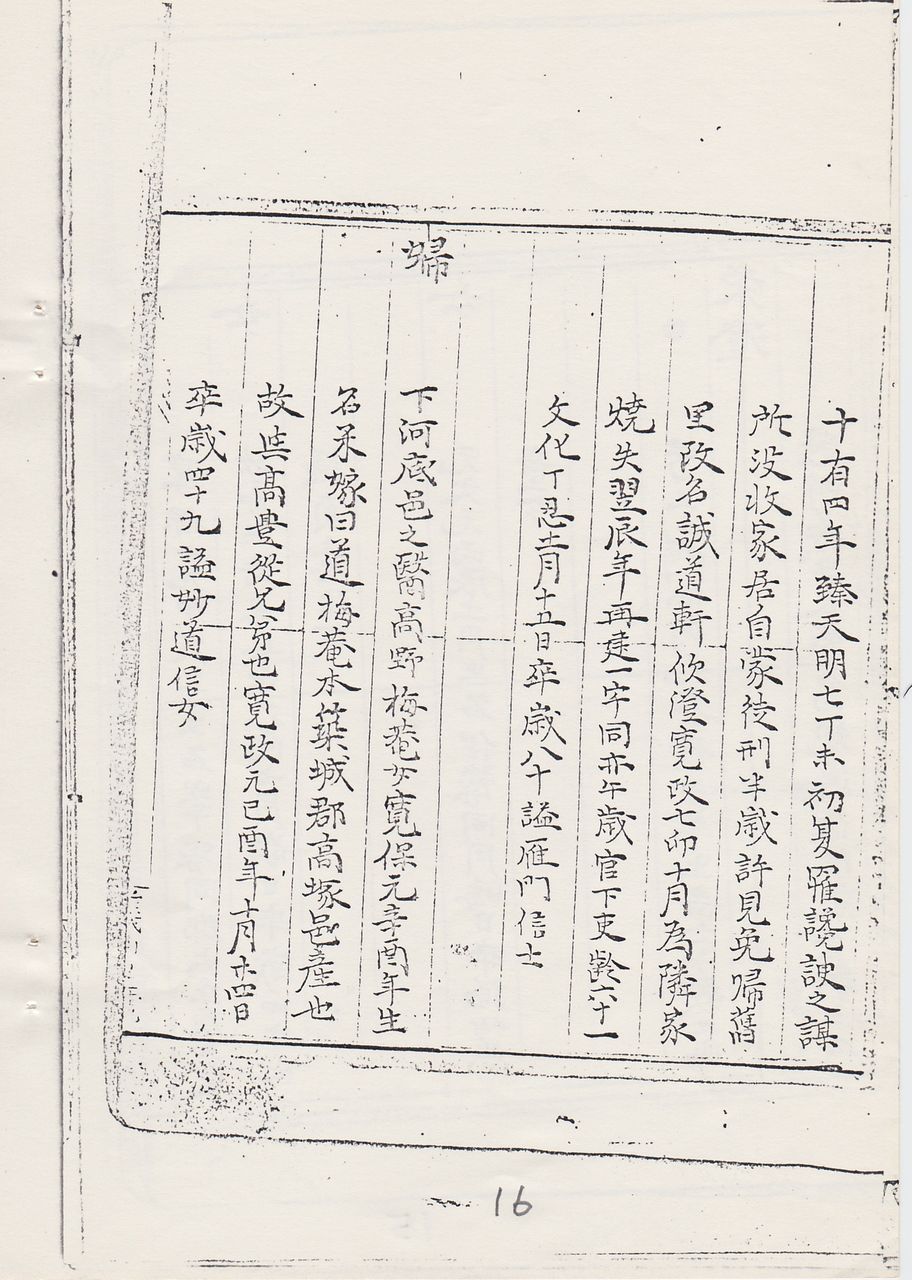 十有四年臻天明七丁未初夏罹讒諛之謀
所没收家居自蒙徒刑半歳許見免帰舊
里改名誠道軒欣澄寛政七卯十月為隣家
焼失翌辰年再建一宇同亦午歳官下吏齢六十一
文化丁忍十一月十五日卒歳八十謚雁門信士
婦
下河底邑之醫高野梅菴女寛保元辛酉年生
名釆嫁曰道梅菴本築城郡高塚邑産也
故與高豊從兄弟也寛政元己酉年十一月廿四日
卒歳四十九謚妙道信女
16